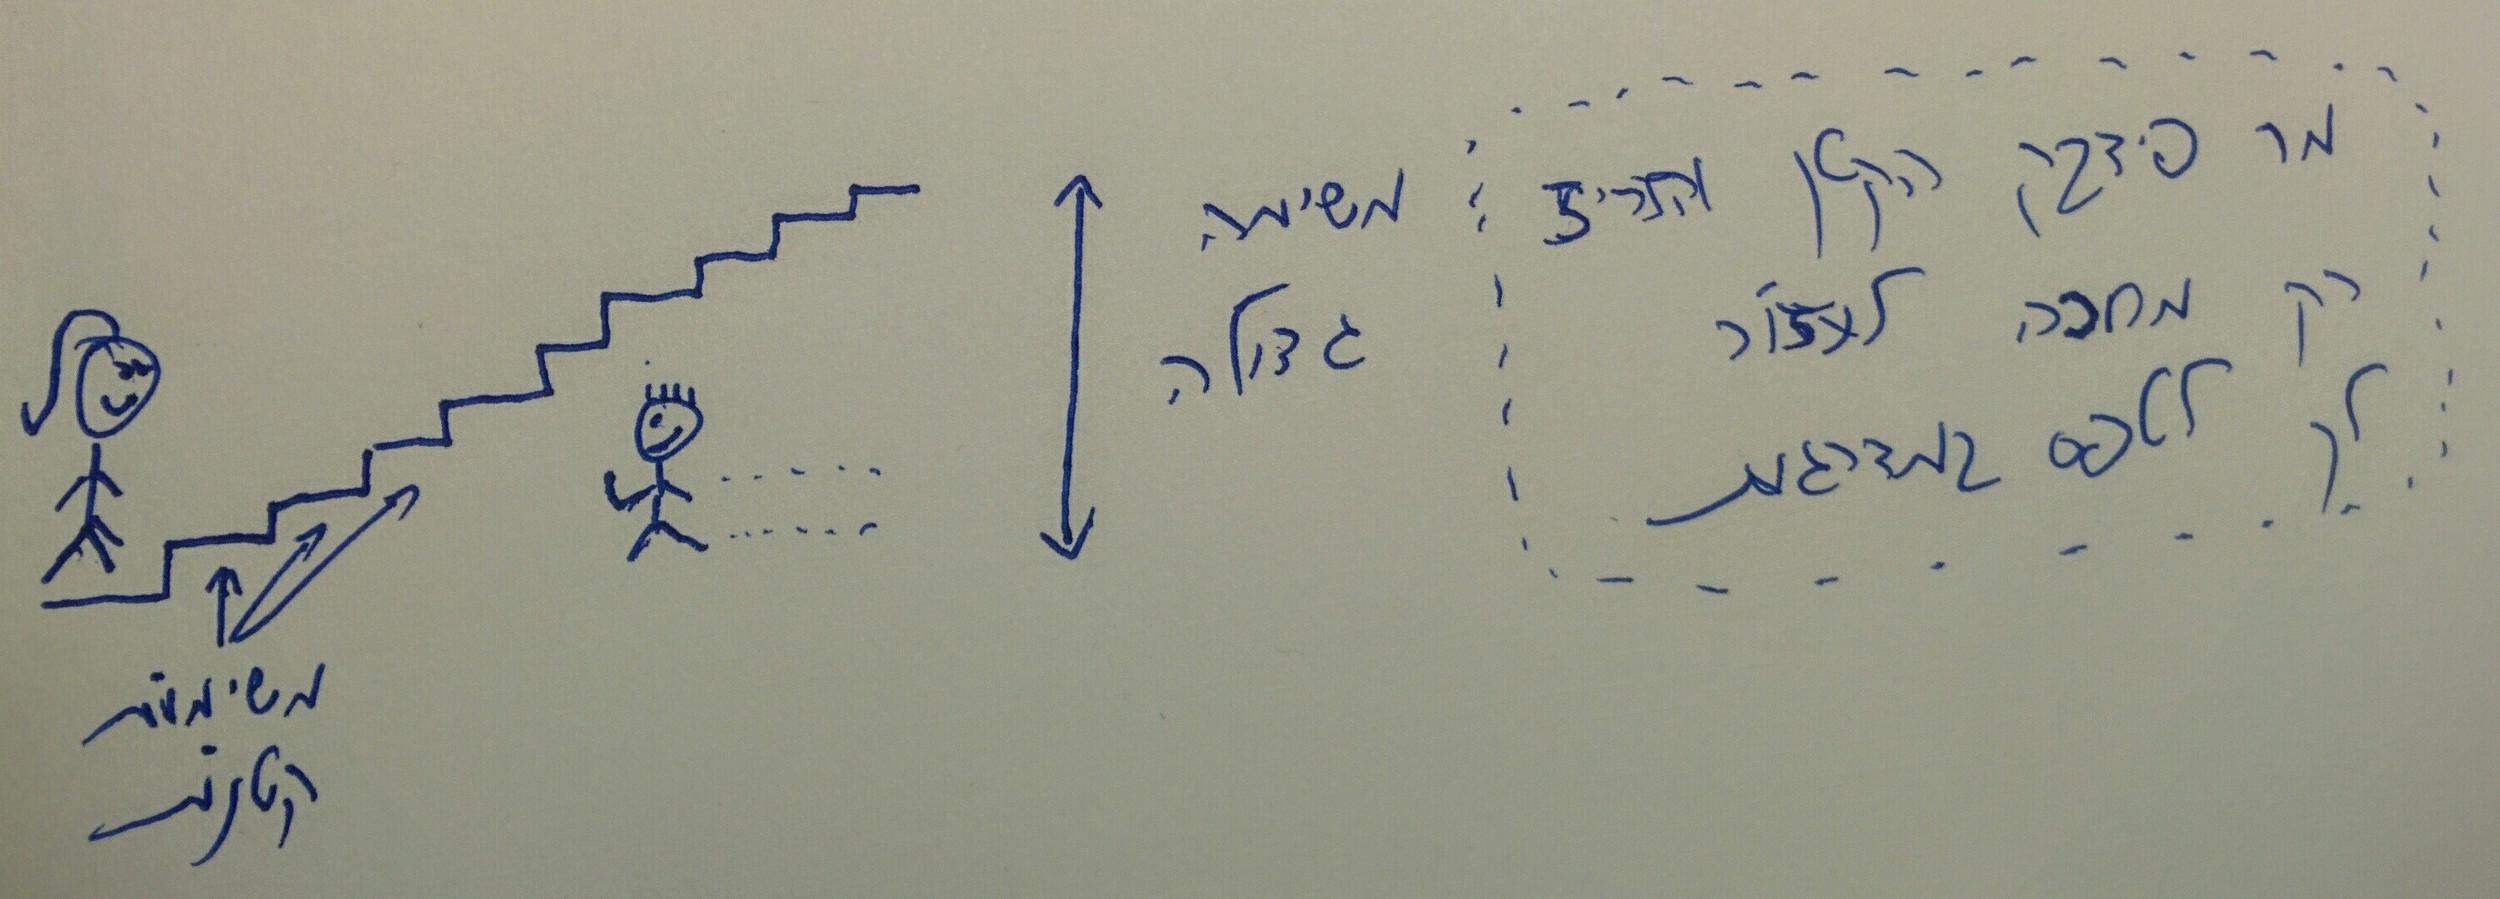 מר פידבק הקטן והזריז
רק מחכה לעזור
לך לטפס במדרגות
משימה
גדולה
משימות
קטנות